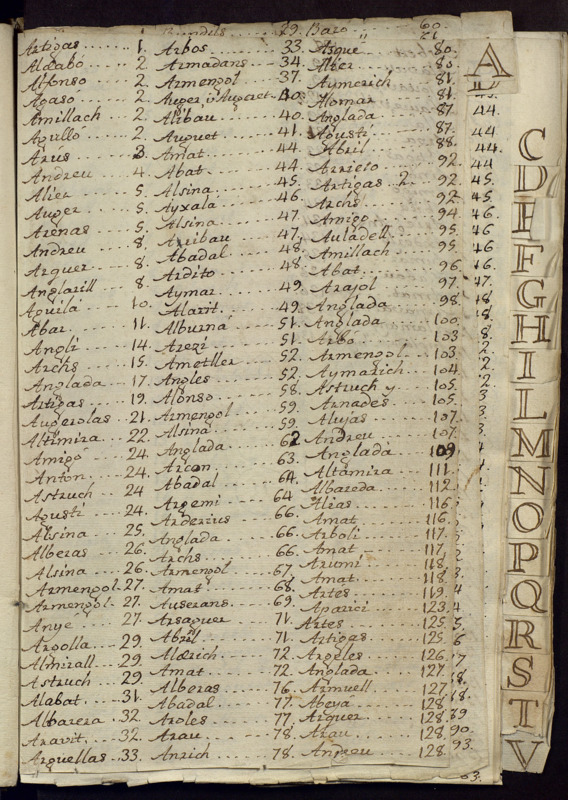 Artigas 1.
Aldabó 2.
Alfonso 2.
Agasó 2.
Amillach 2.
Agulló 2.
Arús 3.
Andreu 4.
Alier 5.
Auger 5.
Arenas 5.
Andreu 8.
Arquer 8.
Anglarill 8.
Aguilá 10.
Abar 11.
Angli 14.
Archs 15.
Anglada 17.
Artigas 19.
Augerolas 21.
Altimira 22.
Amigó 24.
Anton 24.
Astruch 24
Agusti 24.
Alsina 25.
Alberas 26.
Alsina 26.
Armengol 27.
Armengol 27.
Anye 27.
Argolla 29.
Almirall 29.
Astruch 29.
Alabat 31.
Albarera 32.
Aravit 32.
Arguellas 33.
29.
Arbos 33.
Armadans 34.
Armengol 37.
Auger ó Augaret 40.
Alibau 40.
Auguet 41.
Amat 44.
Abat 44.
Alsina 45.
Ayxala 46.
Alsina 47
Arribau 47.
Abadal 48.
Ardito 48.
Aymar 49.
Alarit 49.
Alburná 51.
Arezi 51.
Ametller 52.
Angles 52.
Alfonso 58.
Armengol 59.
Alsina 59.
Anglada 62
Arcon 63.
Abadal 64.
Argemi 64
Arderius 66.
Anglada 66.
Archs 66.
Armengol 67.
Amat 68.
Auserans 69.
Arsaguer 71.
Abril 71.
Alderich 72
Amat 72
Alberas 76.
Abadal 77.
Aroles 77.
Arau 78.
Anrich 78.
Baró 60.
Asque 80.
Alber 80.
Aymerich 81.
Alomar 81.
Anglada 87.
Agusti 87.
Abril 88.
Arrieto 92
Artigas 2 92.
Archs 92.
Amigo 94.
Auladell 95.
Amillach 95.
Abat 96
Arajol 97.
Anglada 98.
Anglada 100.
Arbo 103
Armengol 103
Aymarich 104
Astruch y 105.
Arnades 105.
Alujas 107.
Andreu 107.
Anglada 109
Altamira 111.
Albareda 112.
Alias 116.
Amat 116.
Arboli 117.
Amat 117.
Arumi 118.
Amat 118.
Artes 119.
Aparici 123.
Artes 125.
Artigas 125.
Argeles 126.
Anglada 127.
Arimuell 127.
Abeyá 128
Arquer 128.
Arau 128.
Andreu 128.
44.
44
44.
44
45.
45.
46.
46
46.
47.
48
A
C
D
E
F
G
H
I
L
M
N
O
P
Q
R
S
T
V